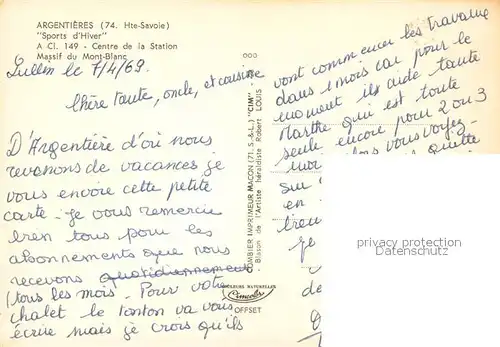 ARGENTIÈRES (74. Hte-Savoie)
"Sports d'Hiver"
A Cl. 149 - Centre de la Station
Massif du Mont-Blanc
Lullin le 7/4/69.
Chère tante, oncle, et cousine
D'Argentière d'où nous
revenons de vacances je
vous envoie cette petite
carte. Je vous remercie
bien tous pour les
abonnements que nous
recevons quotidiennement
(tous les mois. Pour votre
chalet le tonton va vous
écrire mais je crois qu'ils
COMBIER IMPRIMEUR MACON (71. S.-&-L.) "CIM"
Blason de l'Artiste héraldiste Robert LOUIS
COULEURS NATURELLES
Cimcolor
OFFSET
vont commencer les travaux
dans 1 mois car pour le
moment ils aide tante
Marthe qui est toute
seule encore pour 2 ou 3
alors vous voyez
quitte
sur
en
je
de
privacy protection
AnsichtskartenVersand.com